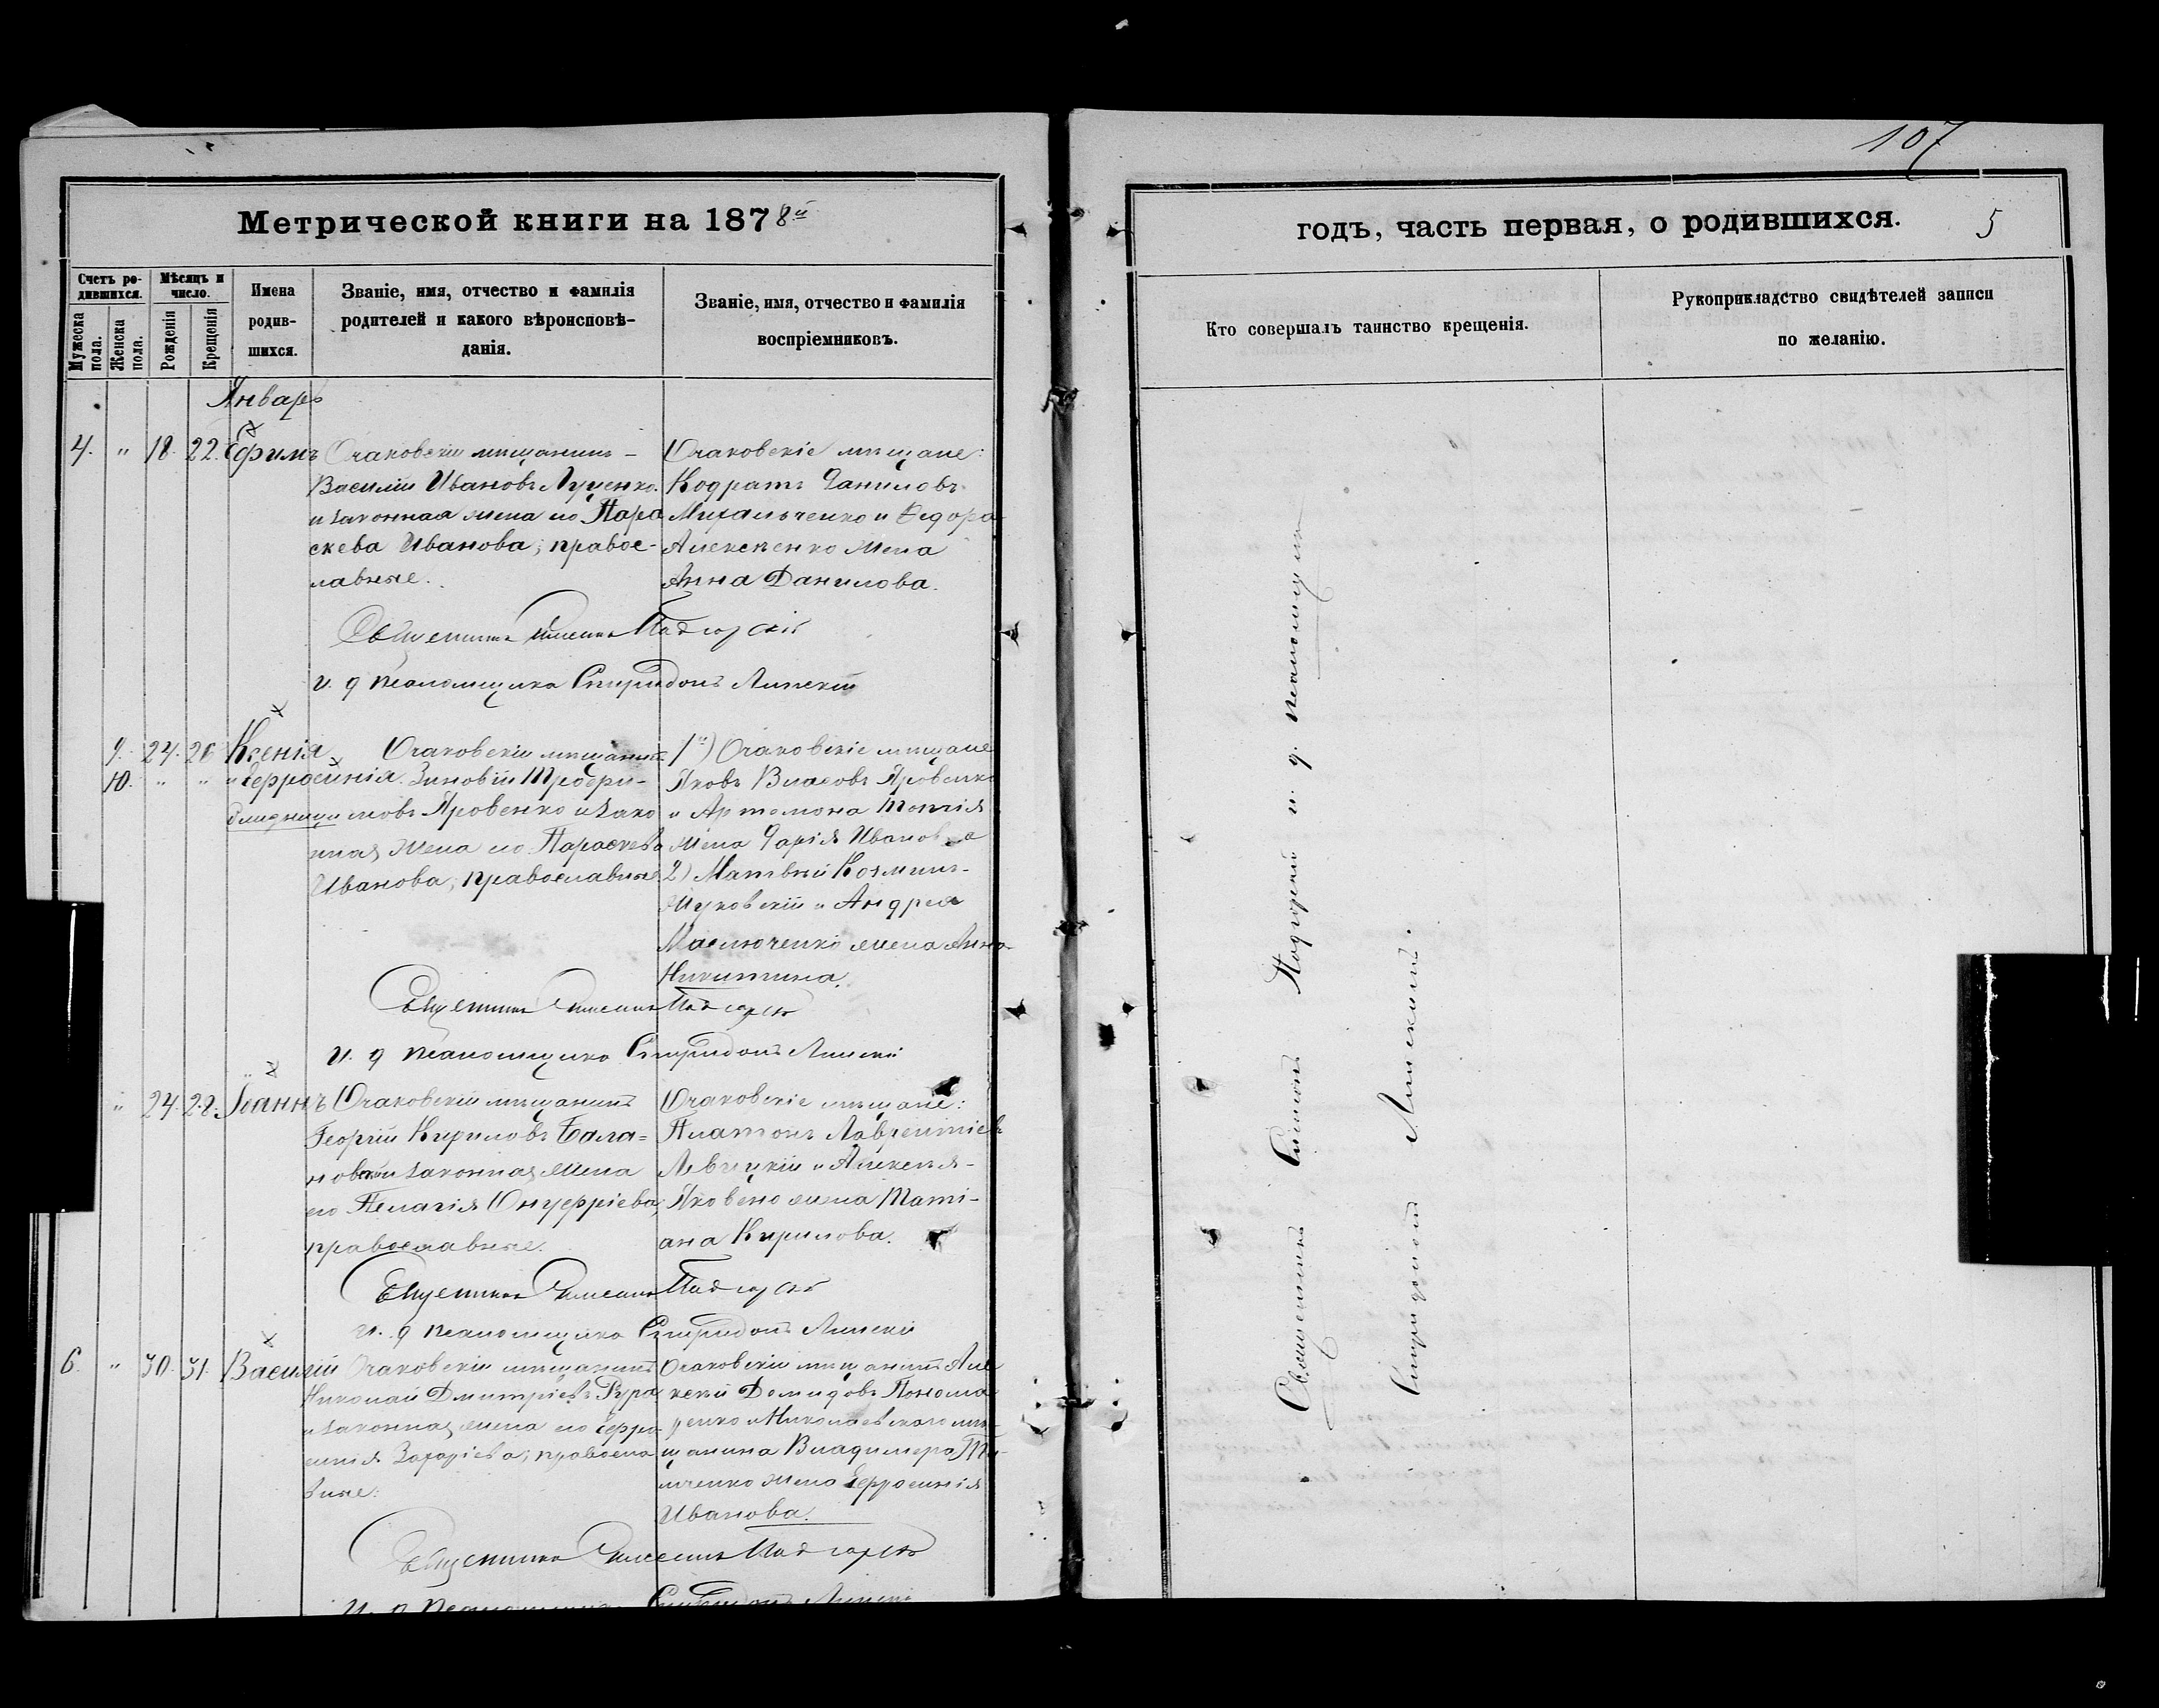 107
Метрической книги на 1878й
годъ, часть первая, о родившихся. 5
Счетъ родившихся.
Мужеска пола.
Женска пола.
Мѣсяцъ и число.
Рожденія
Крещенія
Имена родившихся.
Званіе, имя, отчество и фамилія
родителей и какого вѣроисповѣ-
данія.
Званіе, имя, отчество и фамилія
воспріемниковъ.
Кто совершалъ таинство крещенія.
Рукоприкладство свидѣтелей записи
по желанію.
Январь
4. " 18. 22. Ефимъ
Очаковскій мѣщанинъ -
Василій Ивановъ Луценко
и законная жена его Пара
скева Иванова; правос-
лавные.
Очаковскіе мѣщане:
Кодратъ Даниловъ
Михальченко и Ѳедора
Алексѣенко жена
Анна Данилова.
Священникъ Симеонъ Подгорскій
И. д псаломщика Спиридонъ Липскій
9. 24. 26 Ксенія
10. " " и Евфросинія.
близнецы
Очаковскій мѣщанинъ
Зиновій Трофи-
мовъ Яровенко и зако
нная жена его Параскева
Иванова; православные
1й) Очаковскіе мѣщане
Яковъ Власовъ Яровенко
и Артомона
жена Дарія Иванова
2) Матвѣй Козминъ
Жуковскій и Андрея
Маслюченко жена Анна
Никитина.
Священникъ Симеонъ Подгорскій
И. д псаломщика Спиридонъ Липскій
" 24. 28. Іоаннъ
Очаковскій мѣщанинъ
Георгій Кириловъ Бала=
новскій и законная жена
его Пелагія Онуфріева;
православные.
Очаковскіе мѣщане:
Платонъ Лаврентіевъ
Левицкій и Алексѣя
Яковено жена Таті-
ана Кирилова.
Священникъ Симеонъ Подгорскій
И. д псаломщика Спиридонъ Липскій
6. " 30. 31. Василій
Очаковскій мѣщанинъ
Николай Дмитріевъ
и законная жена его Евфро-
синія Захаріева; правосла
вные.
Очаковскій мѣщанинъ Але
ксѣй Демидовъ Понома
ренко и Николаевскаго мѣ-
щанина Владимера
жена Евфросинія
Иванова.
Священникъ Симеонъ Подгорскій
И. д псаломщика Спиридонъ Липскій
Священникъ Симеонъ Подгорскій и. д. псаломщика
Спиридонъ Липскій.